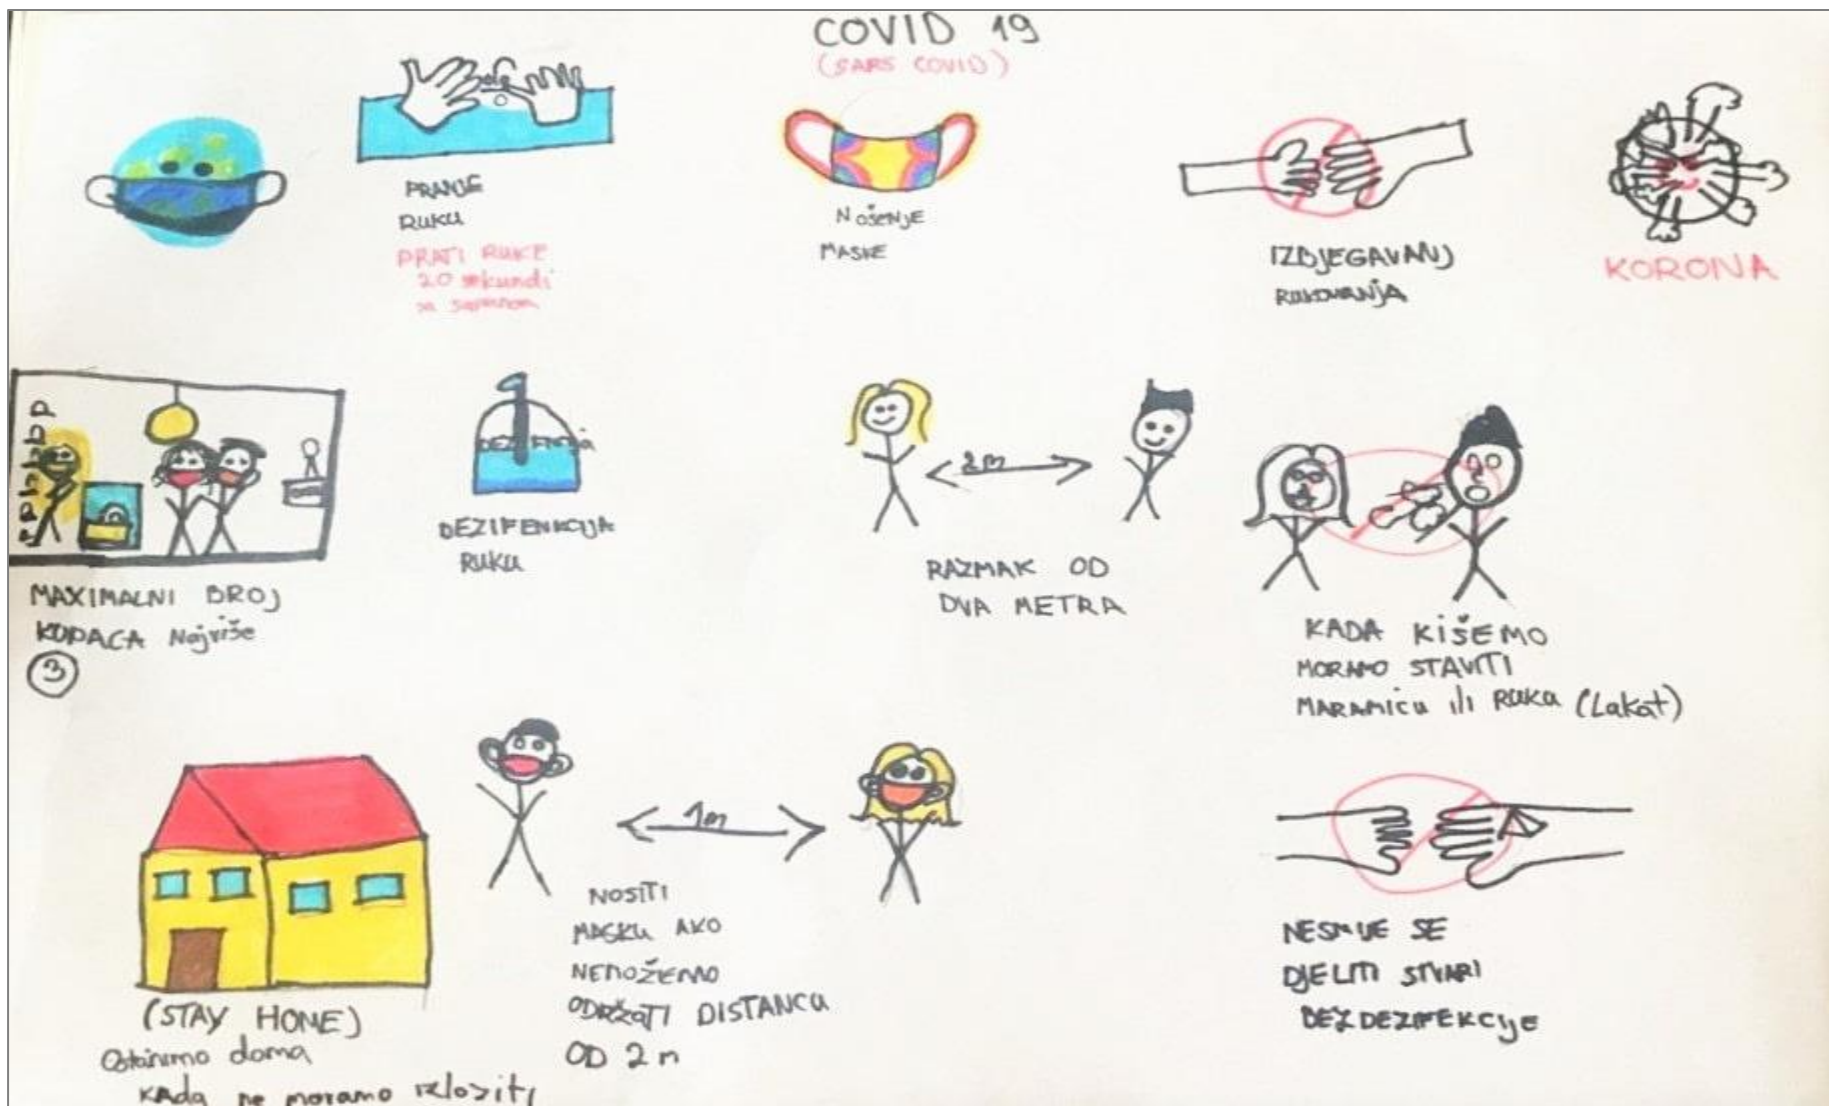 COVID 19
(SARS COVID)
PRANJE
RUKU
PRATI RUKE
20 sekundi
sa sapunom
NošENJE
MASKE
IZBJEGAVANJ
RUKOVANJA
KORONA
MAXIMALNI BROJ
KUPACA Najviše
3
DEZIFENKCIJA
RUKU
2m
RAZMAK OD
DVA METRA
KADA KIŠEMO
MORAMO STAVITI
MARAMICU ili RUKU (Lakat)
(STAY HOME)
Ostanimo doma
KAda ne moramo izlaziti
1m
NOSITI
MASKU AKO
NEMOŽEMO
ODRŽATI DISTANCU
OD 2 m
NESMIJE SE
DJELITI STVARI
BEZ DEZIFEKCIJE